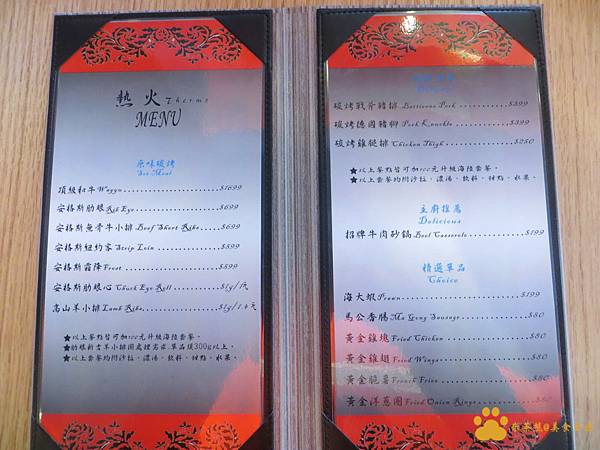 熱 火 Therms
MENU
原味碳烤
Set Meal
頂級和牛 Wagyu ..................$1699
安格斯肋眼 Rib Eye ..................$699
安格斯無骨牛小排 Beef Short Ribs ........$699
安格斯紐約客 Strip Loin ..................$599
安格斯霜降 Frost ..................$599
安格斯肋眼心 Chuck Eye Roll ..........$1g/1元
高山羊小排 Lamb Ribs ..................$1g/1.4元
★以上餐點皆可加100元升級海陸套餐。
300g以上。
★以上套餐均附沙拉、濃湯、飲料、甜點、水果。
碳烤戰斧豬排 Battleaxe Pork ............$399
碳烤德國豬腳 Pork Knuckle ............$399
碳烤雞腿排 Chicken Thigh ............$250
★以上餐點皆可加100元升級海陸套餐。
★以上套餐均附沙拉、濃湯、飲料、甜點、水果。
主廚推薦
Delicious
招牌牛肉砂鍋 Beef Casserole ............$199
精選單品
Choice
海大蝦 Prawn ..................$199
馬公香腸 Ma Gong Sausage ............$80
黃金雞塊 Fried Chicken ............$80
黃金雞翅 Fried Wings ............$80
黃金脆薯 French Fries ............$80
黃金洋蔥圈 Fried Onion Rings ............$80